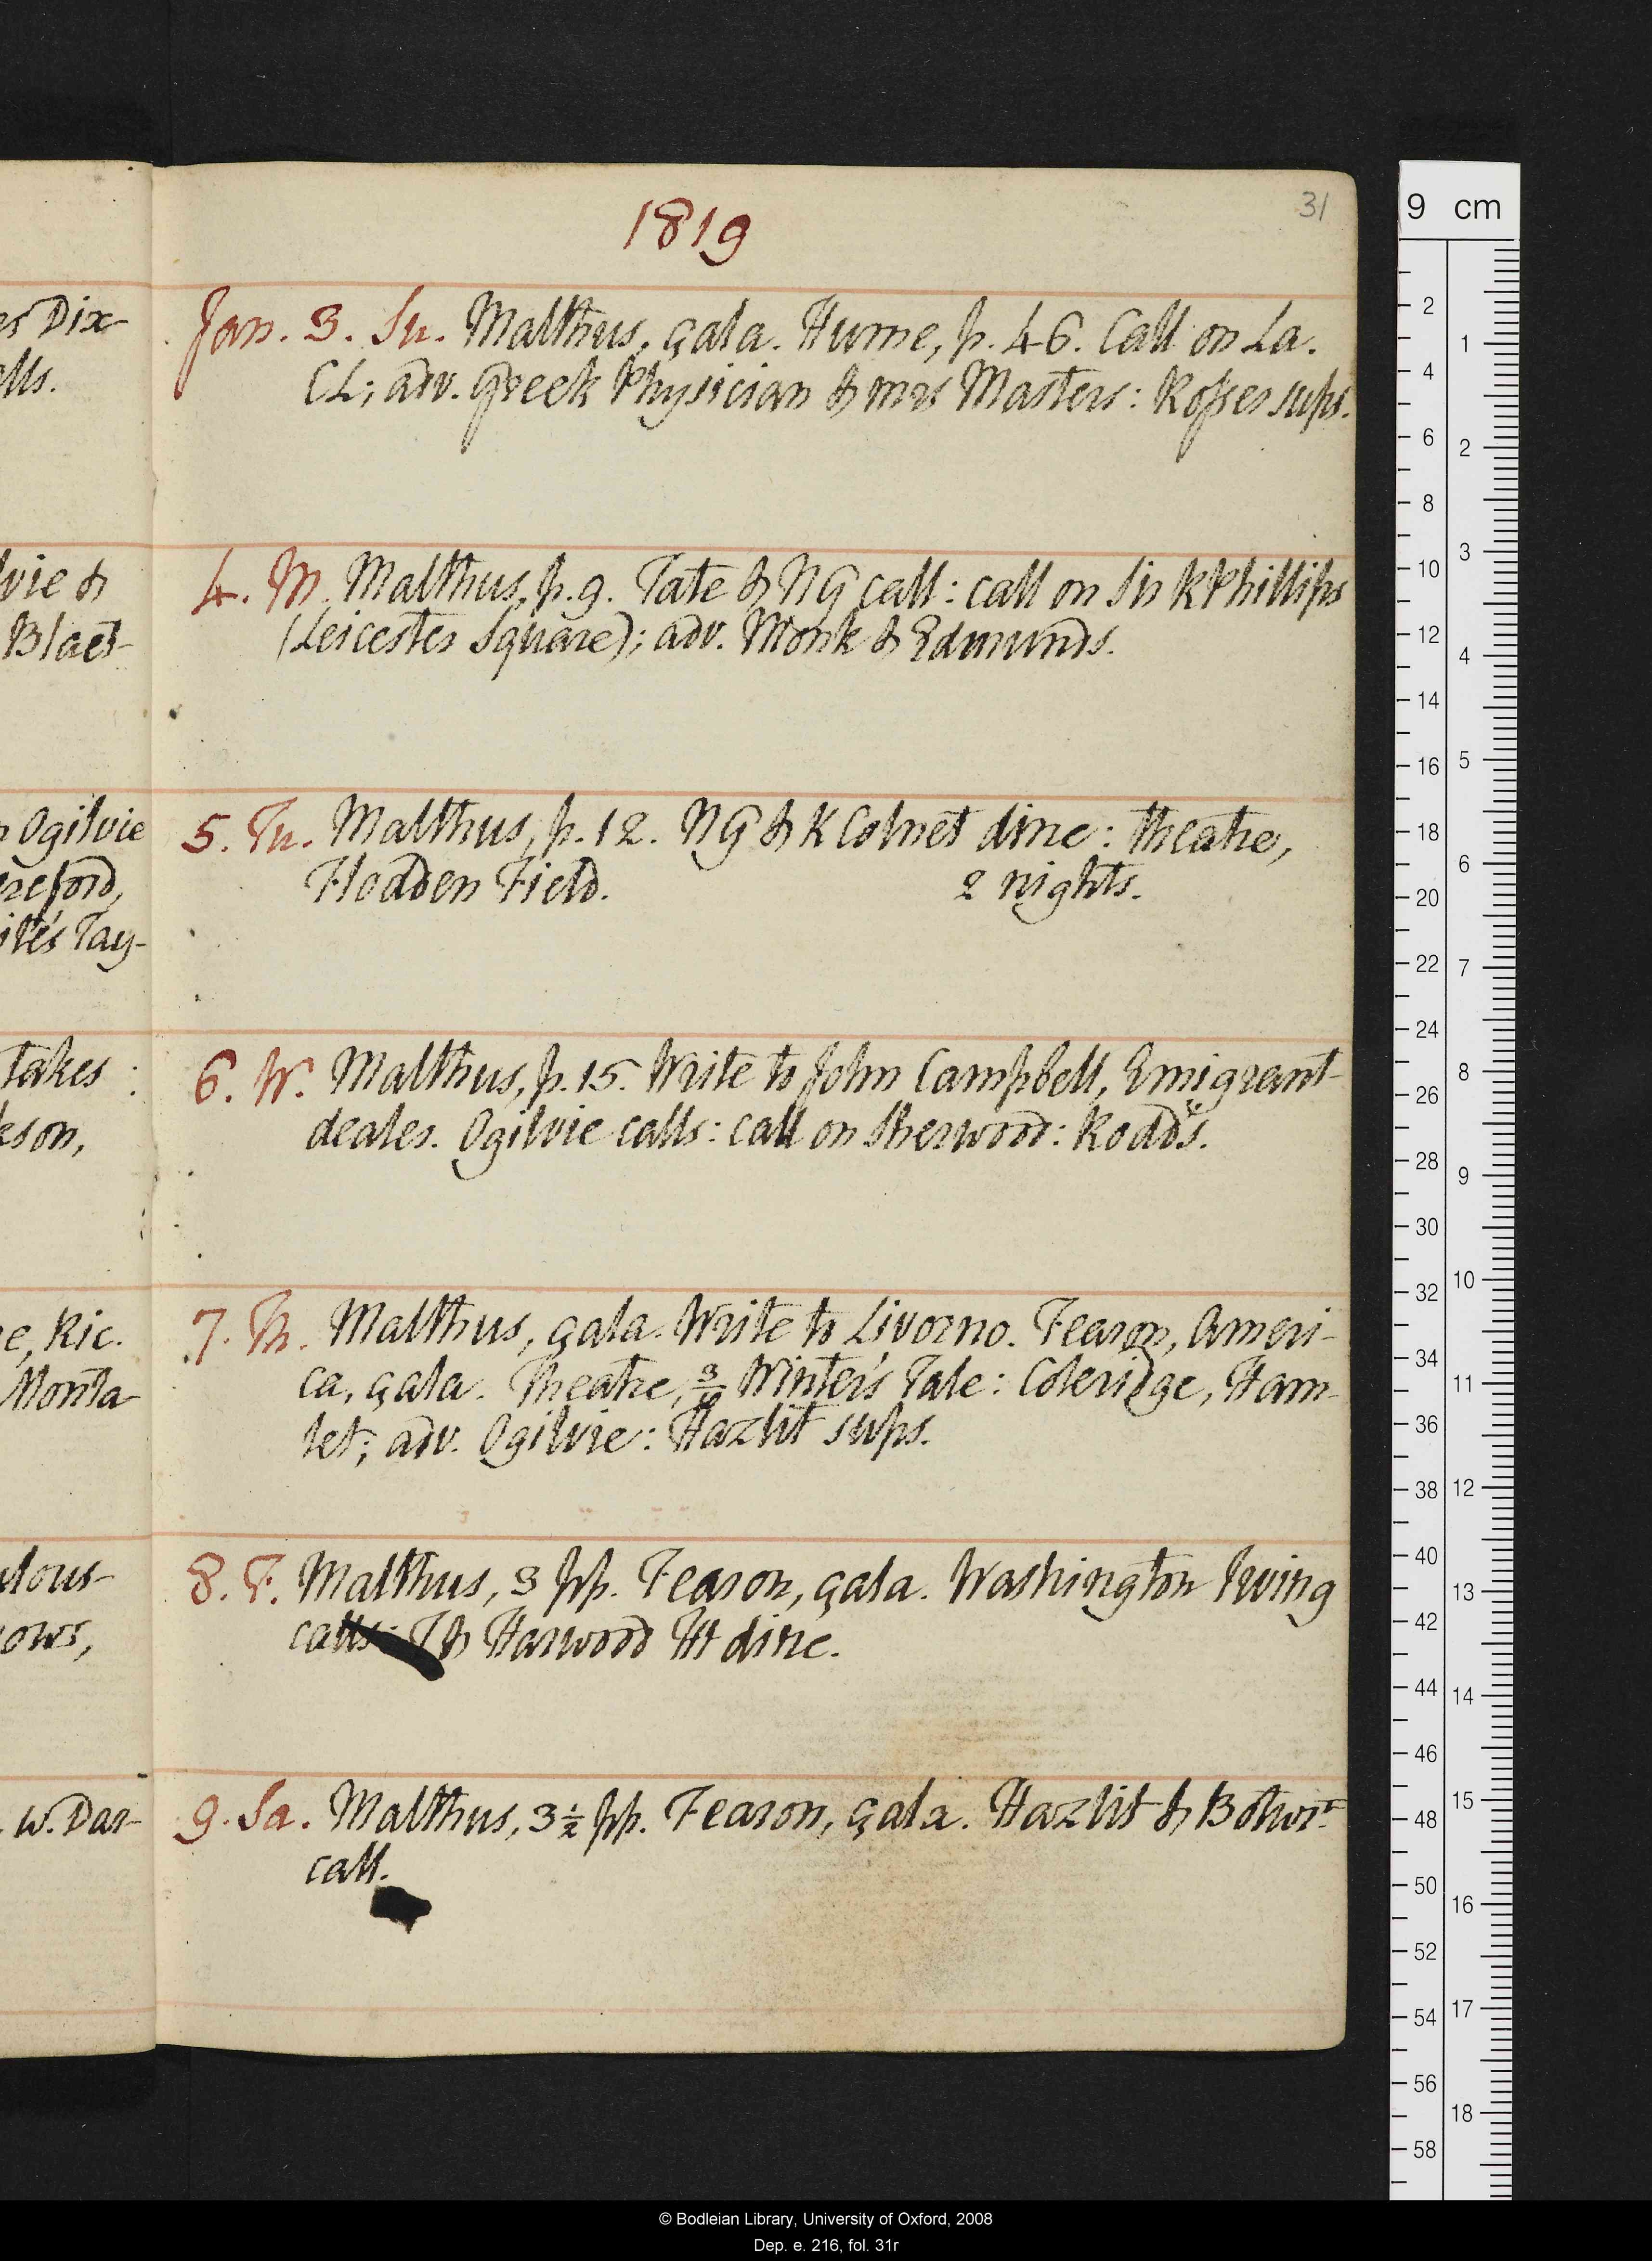 31
1819
es Dix-
lls.
Jan. 3. Su. Malthus, çala. Hume, p. 46. Call on La.
CL; adv. Greek Physician & mrs Masters: Rosser sups.
lvie &
Blaet-
4. M. Malthus, p. 9. Tate & NG call: call on Sir R Phillips
(Leicester Square); adv. Monk & Edmunds.
Ogilvie
ereford,
Tay-
5. Tu. Malthus, p. 12. NG & K Colnet dine: theatre,
Flodden Field. 2 nights.
takes :
kson,
6. W. Malthus, p. 15. Write to John Campbell, Emigrant-
dealer. Ogilvie calls: call on Sherwood: Rodd's.
e, Ric.
Monta
7. Th. Malthus, çala. Write to Livorno. Fearon, Ameri-
ca, çala. Theatre, Winter's Tale: Coleridge, Ham-
let; adv. Ogilvie: Hazlit sups.
ulous-
ows,
8. F. Malthus, 3 pp. Fearon, çala. Washington Irving
calls: Th Harwood Ht dine.
w. Dar-
9. Sa. Malthus, 3½ pp. Fearon, çala. Hazlit &
call.
9 cm
2
4
6
8
10
12
14
16
18
20
22
24
26
28
30
32
34
36
38
40
42
44
46
48
50
52
54
56
58
1
2
3
4
5
6
7
8
9
10
11
12
13
14
15
16
17
18
© Bodleian Library, University of Oxford, 2008
Dep. e. 216, fol. 31r